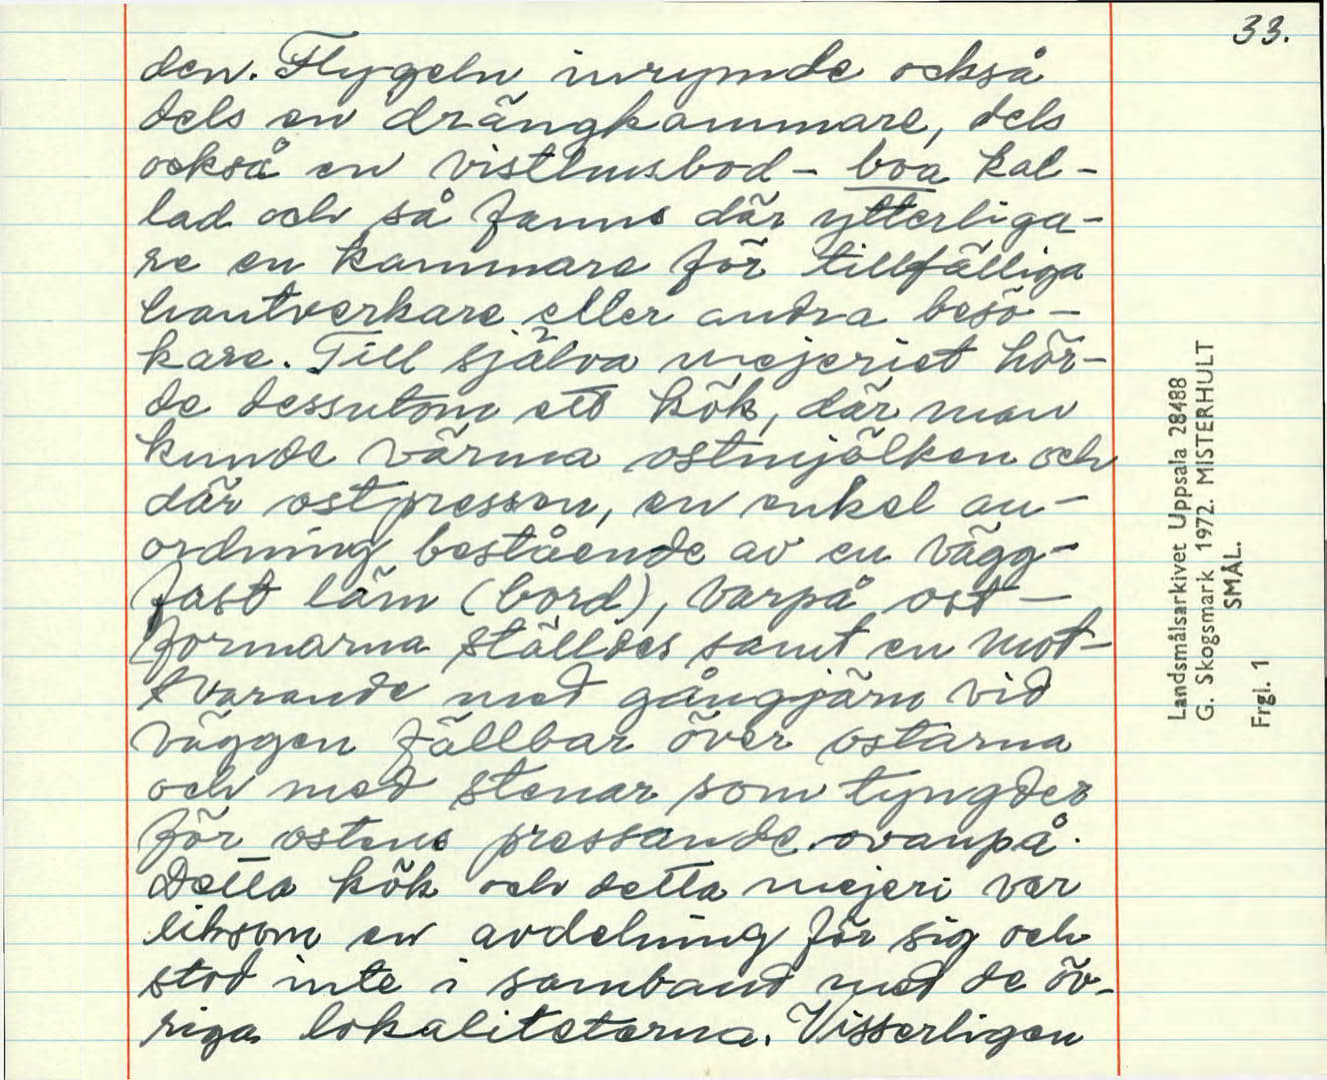 33.
den. Flygeln inrymde också
dels en drängkammare, dels
också en visthusbod - boa kal-
lad och så fanns där ytterliga-
re en kammare för tillfälliga
hantverkare eller andra besö-
kare. Till själva mejeriet hör-
de dessutom ett kök, där man
kunde värma ostmjölken och
där ostpressen, en enkel an-
ordning bestående av en vägg-
fast läm (bord), varpå ost-
formarna ställdes samt en mot-
svarande med gångjärn vid
väggen fällbar över ostarna
och med stenar som tyngder
för ostens pressande ovanpå.
Detta kök och detta mejeri var
liksom en avdelning för sig och
stod inte i samband med de öv-
riga lokaliteterna. Visserligen
Landsmålsarkivet Uppsala 28488
G. Skogsmark 1972. MISTERHULT
SMÅL.
Frgl. 1